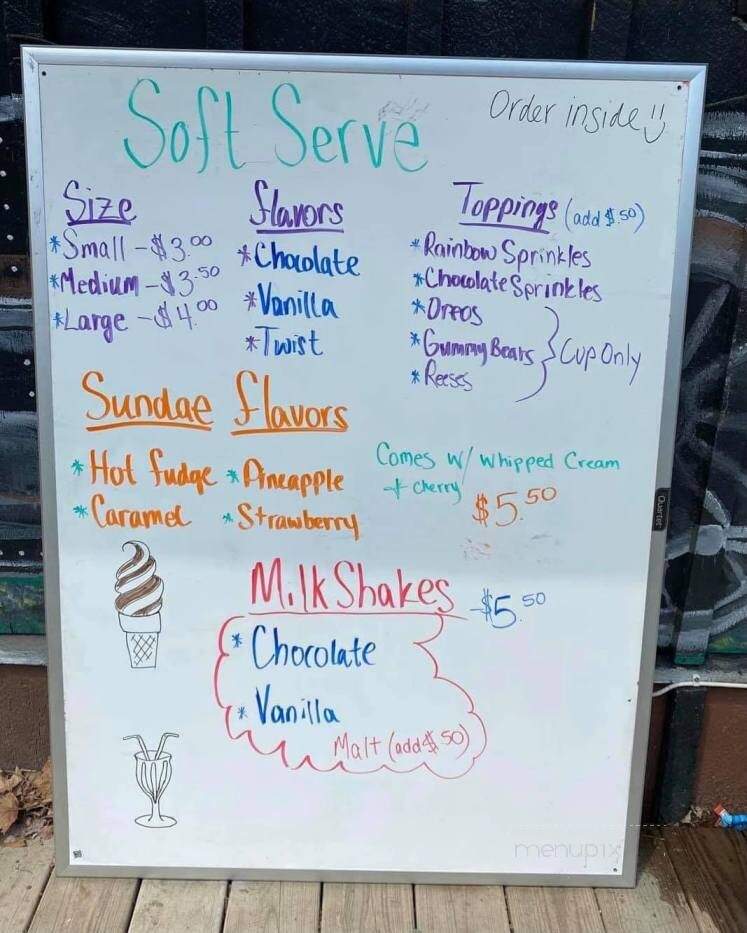 Soft Serve
Order inside !!
Size
*Small - $3.00
*Medium - $3.50
*Large - $4.00
flavors
*Chocolate
*Vanilla
*Twist
Toppings (add $.50)
*Rainbow Sprinkles
*Chocolate Sprinkles
*Oreos
*Gummy Bears
*Reeses
Cup Only
Sundae flavors
*Hot fudge *Pineapple
*Caramel *Strawberry
Comes w/ whipped Cream
+ cherry
$5.50
MilkShakes $5.50
*Chocolate
*Vanilla
Malt (add $.50)
Quartet
menupix